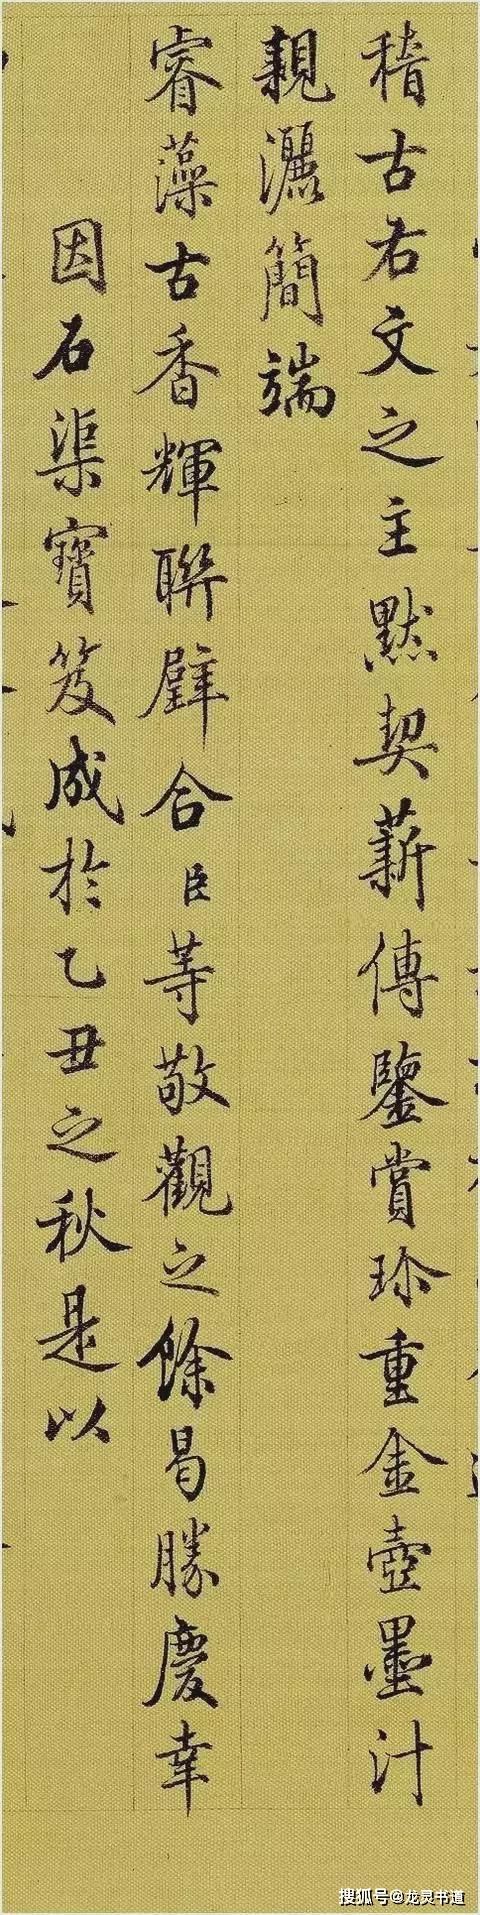 稽古右文之主默契薪傳鑒賞珍重金壺墨汁
親灑簡端
睿藻古香輝聯璧合臣等敬觀之餘曷勝慶幸
因石渠寶笈成於乙丑之秋是以
搜狐号@龙灵书道